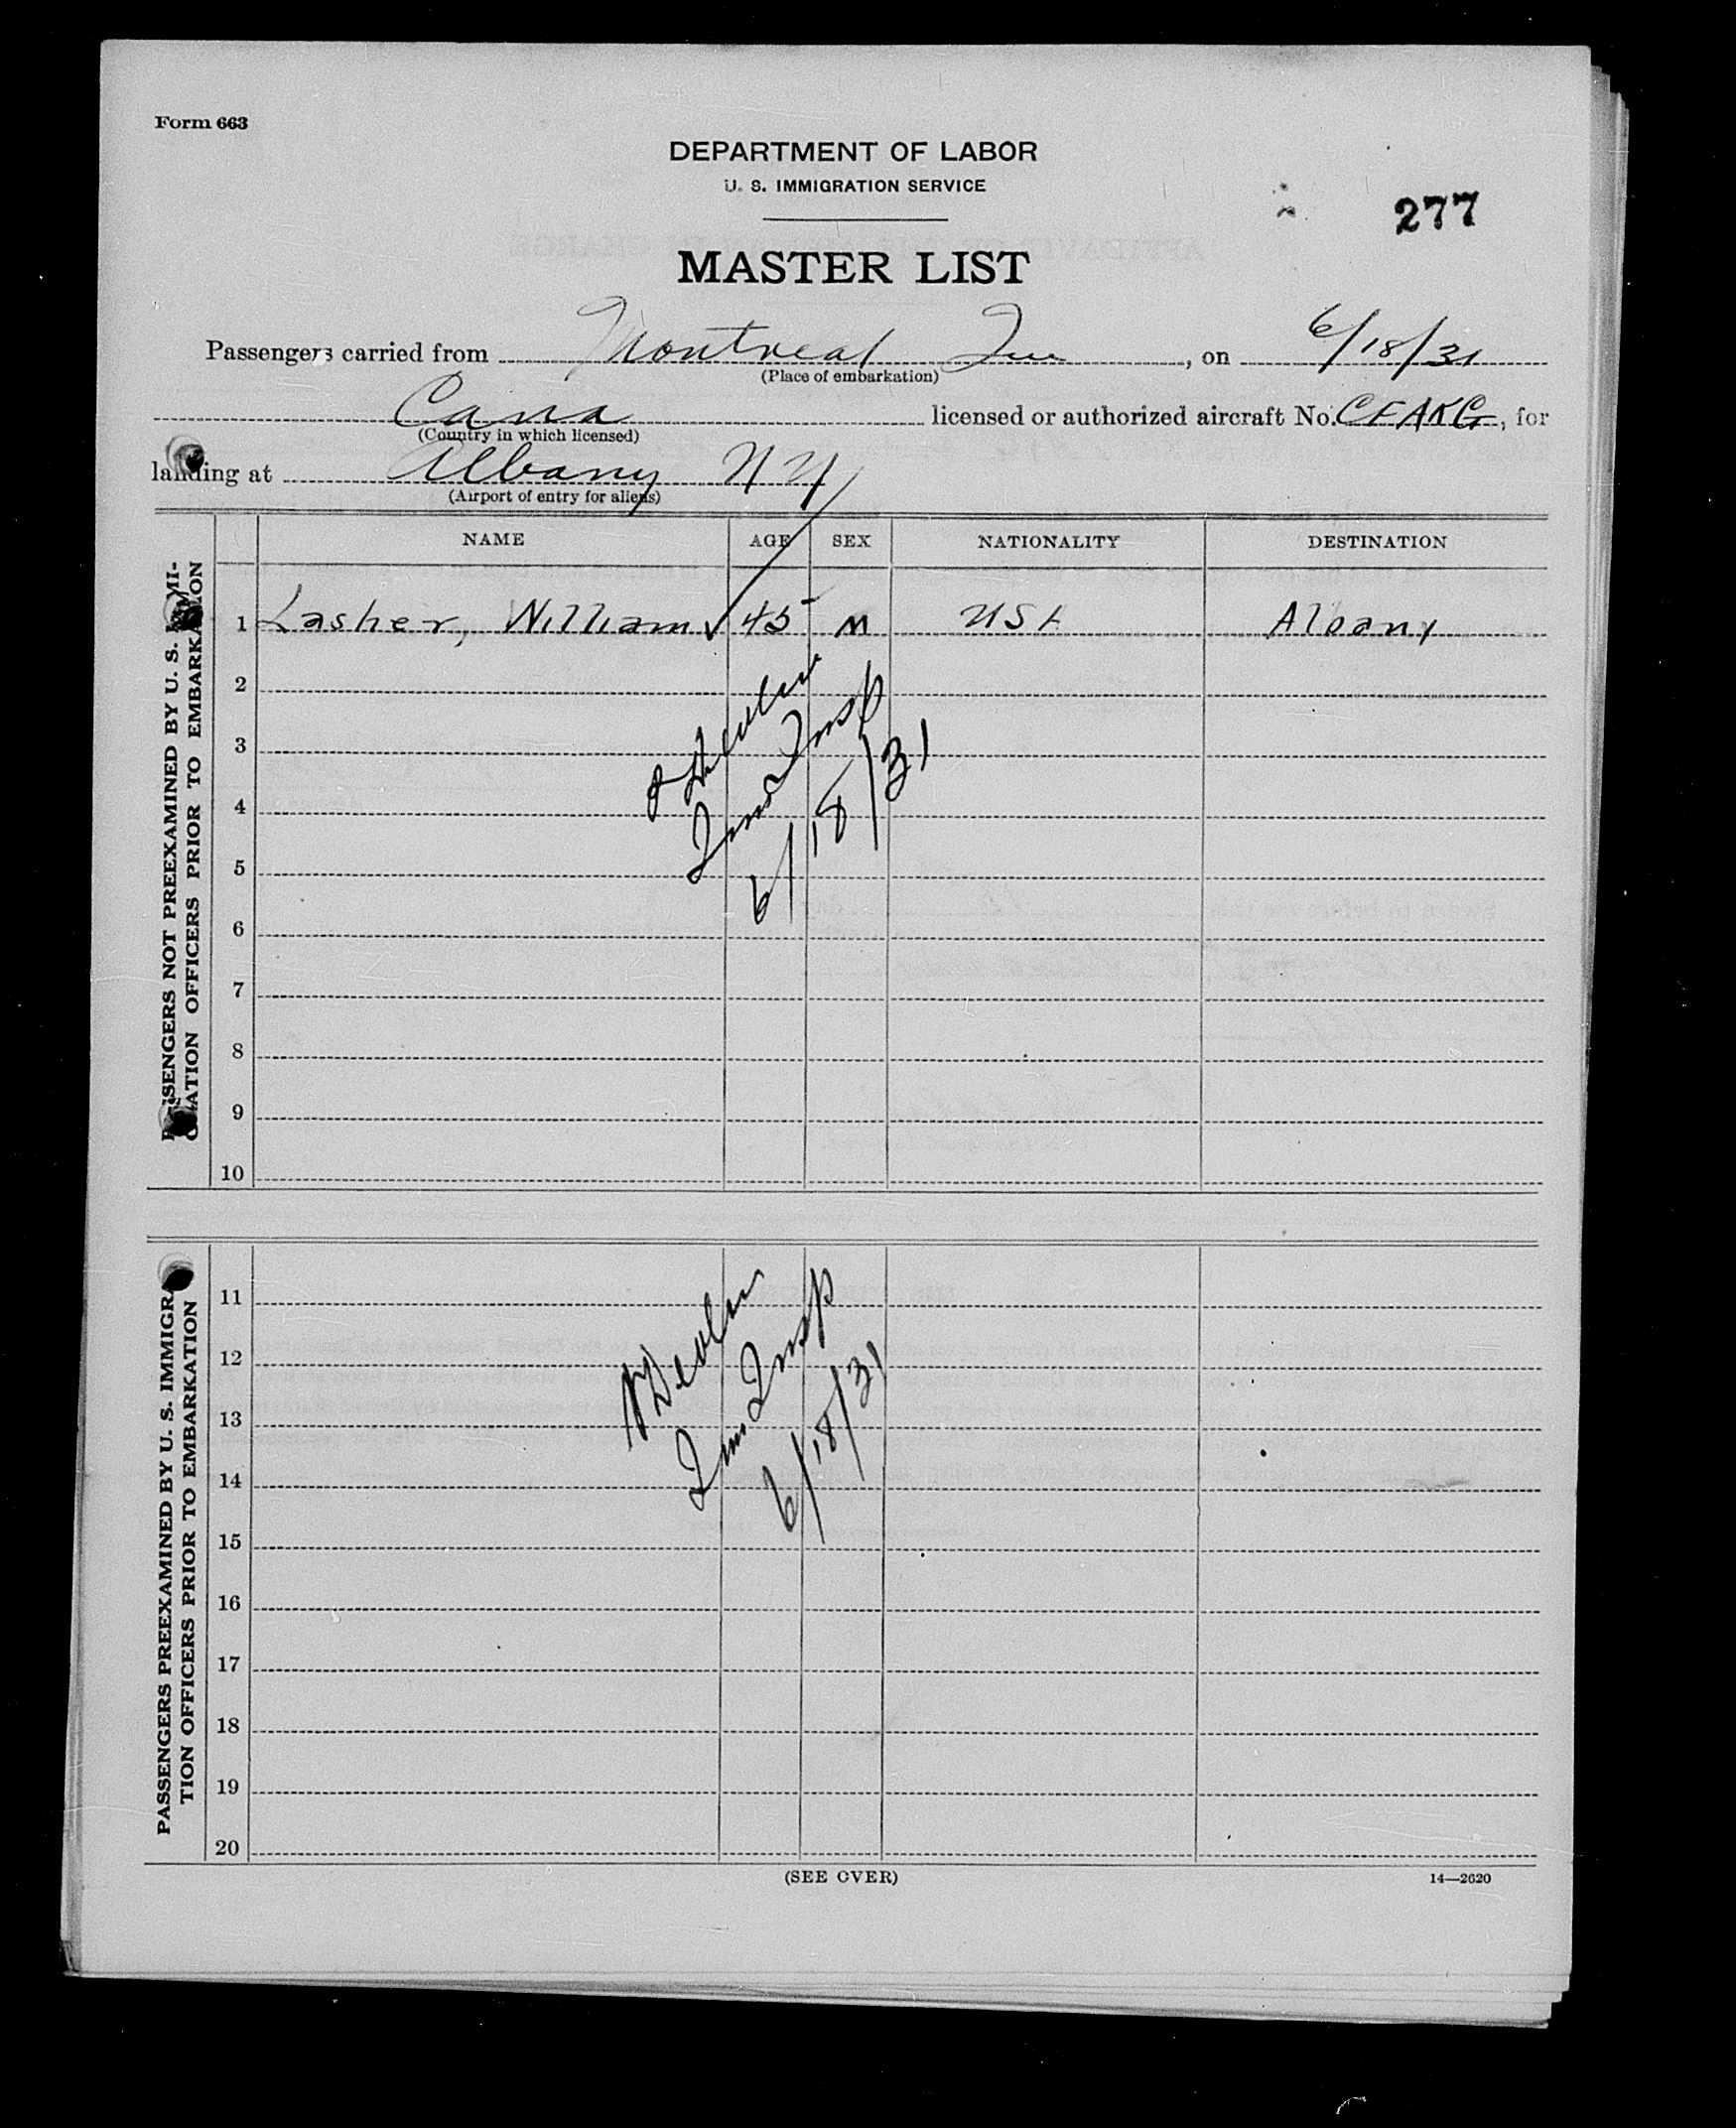 Form 663
DEPARTMENT OF LABOR
U. S. IMMIGRATION SERVICE
277
MASTER LIST
Passengers carried from Montreal Que, on 6/18/31
(Place of embarkation)
Cana licensed or authorized aircraft No. CFAKG, for
(Country in which licensed)
landing at Albany NY
(Airport of entry for aliens)
NAME AGE SEX NATIONALITY DESTINATION
PASSENGERS NOT PREEXAMINED BY U. S. IMMI-
GRATION OFFICERS PRIOR TO EMBARKATION
1 Lasher, William 45 M USA Albany
2
3
4
5
6
7
8
9
10
Devlin
Imm Insp
6/18/31
PASSENGERS PREEXAMINED BY U. S. IMMIGRA-
TION OFFICERS PRIOR TO EMBARKATION
11
12
13
14
15
16
17
18
19
20
Devlin
Imm Insp
6/18/31
(SEE OVER)
14—2620